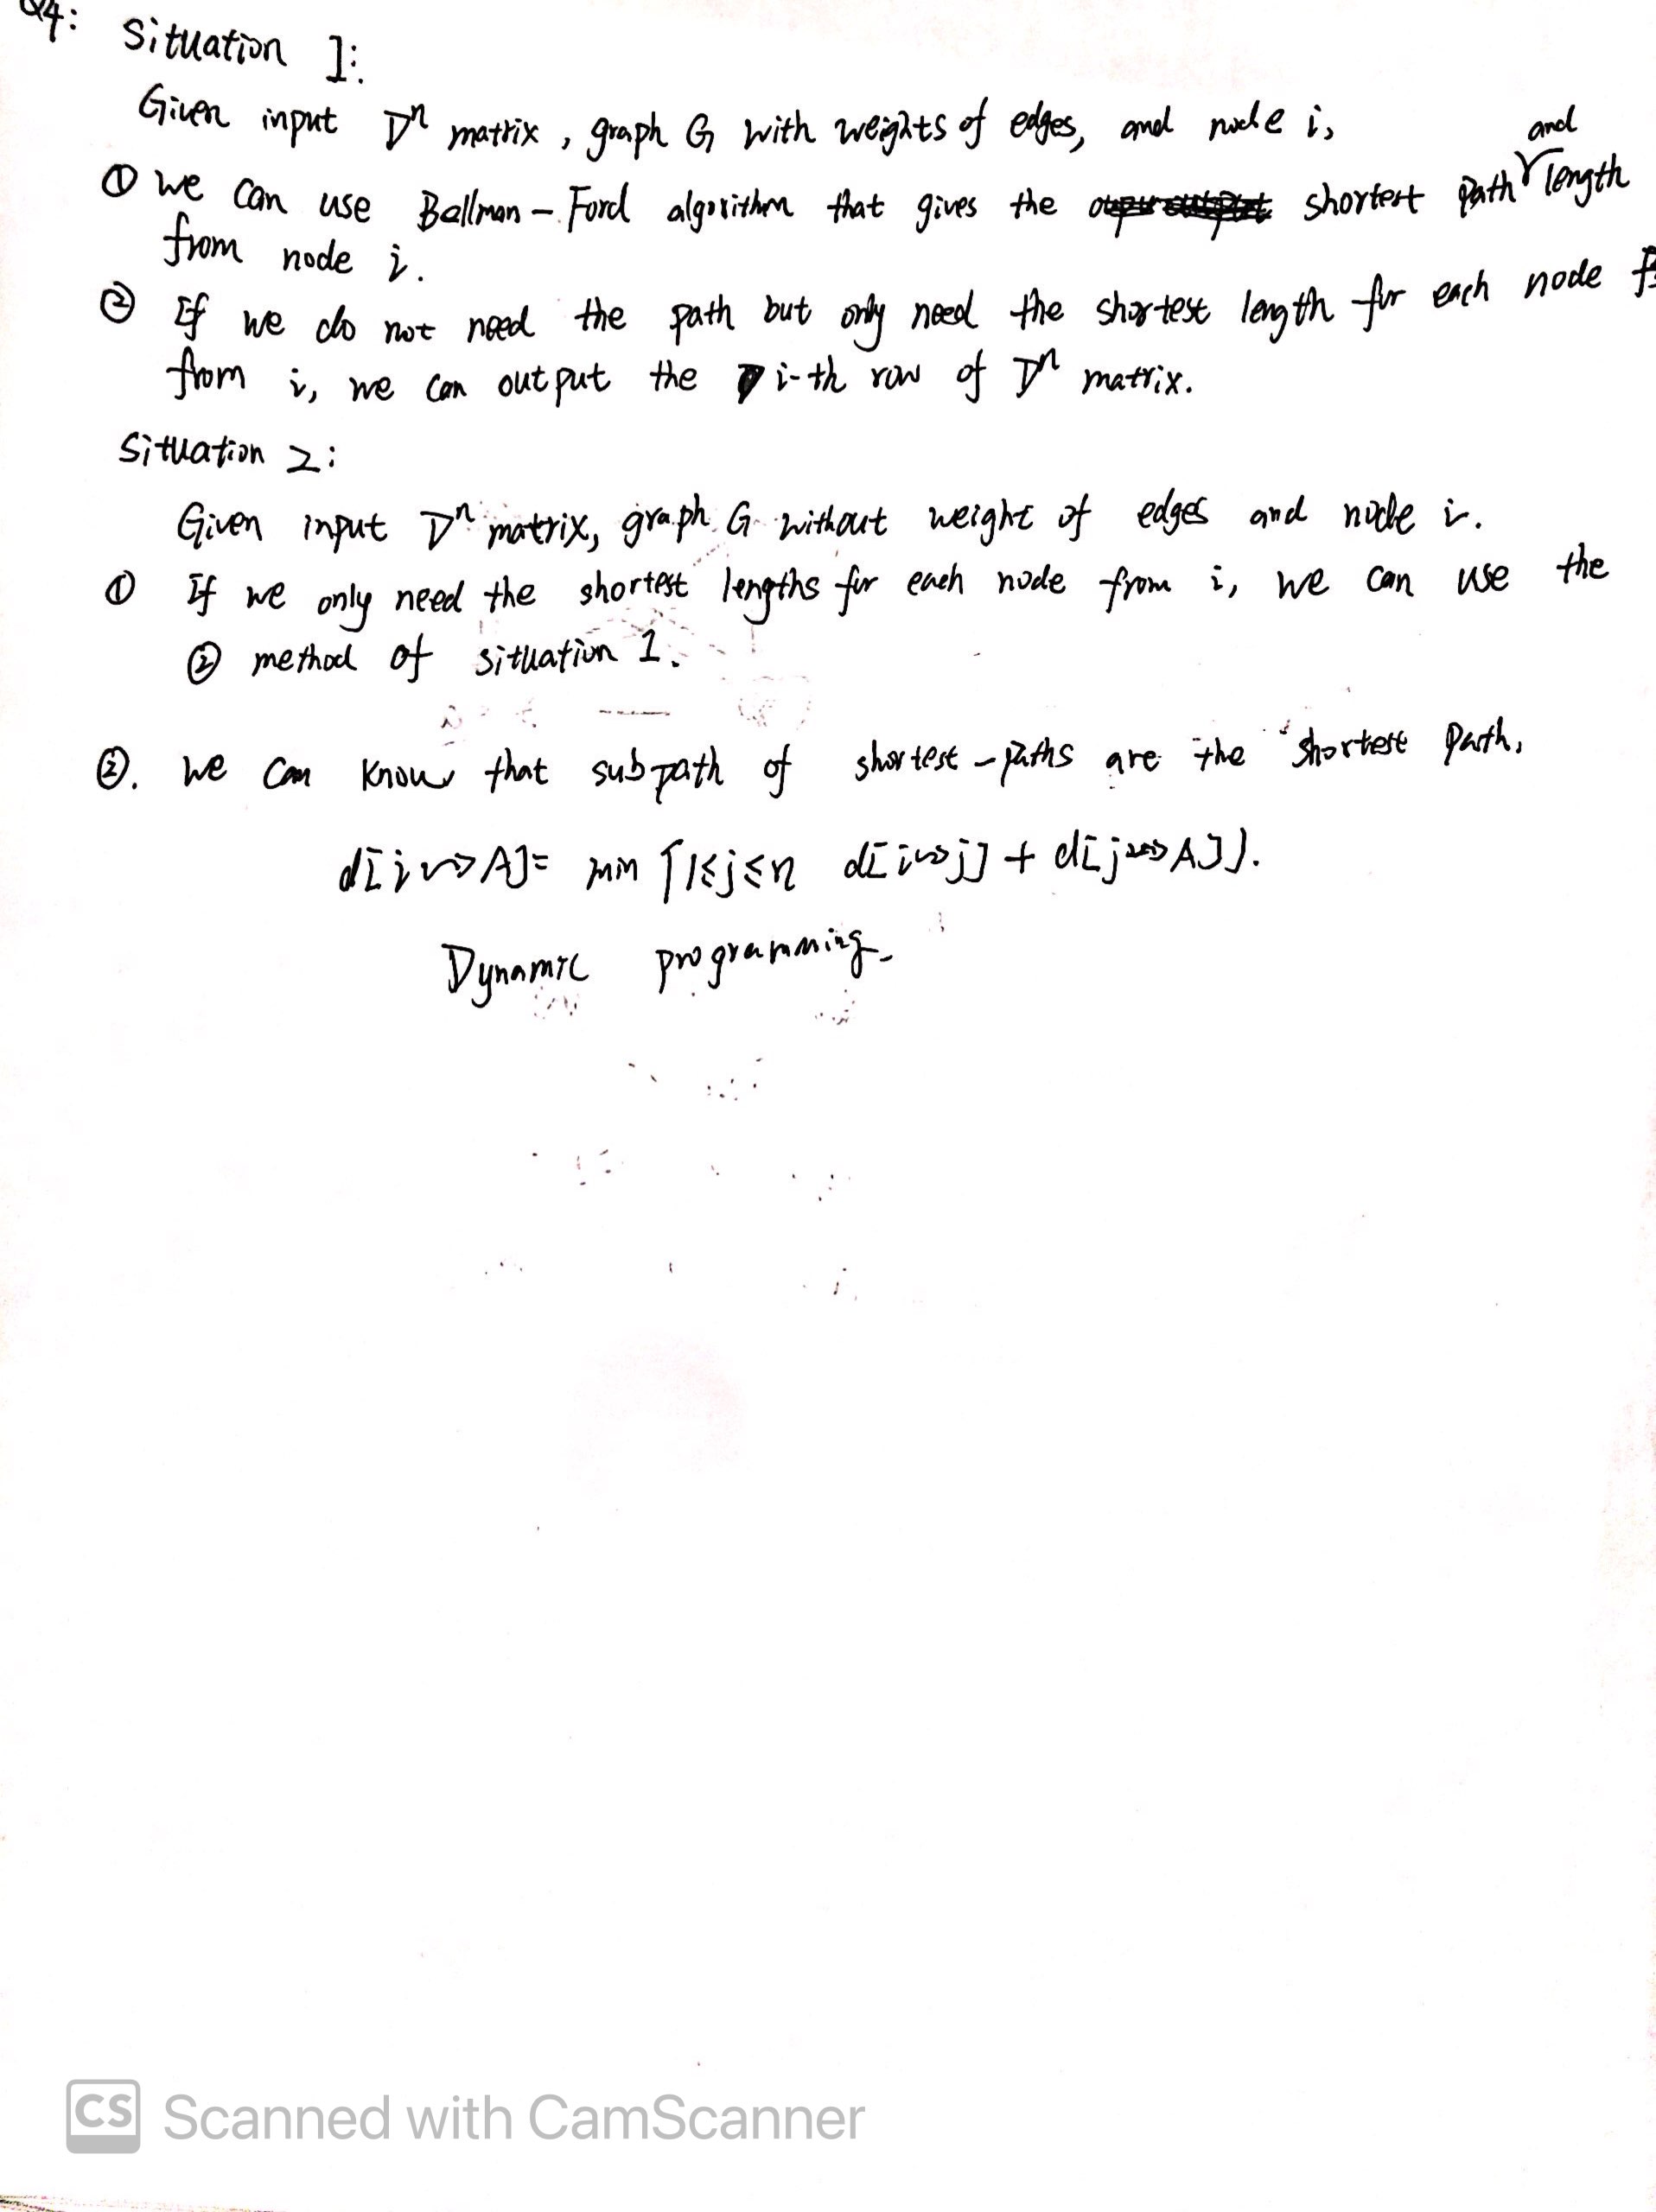 Q4: Situation 1:
Given input Dⁿ matrix, graph G with weights of edges, and node i,
and
① we can use Bellman-Ford algorithm that gives the shortest path length
from node i.
② If we do not need the path but only need the shortest length for each node
from i, we can output the i-th row of Dⁿ matrix.
Situation 2:
Given input Dⁿ matrix, graph G without weight of edges and node i.
① If we only need the shortest lengths for each node from i, we can use the
② method of situation 1.
②. we can know that subpath of shortest-paths are the shortest path,
d[i⇝A]= min {1≤j≤n d[i⇝j] + d[j⇝A]}.
Dynamic programming.
CS Scanned with CamScanner